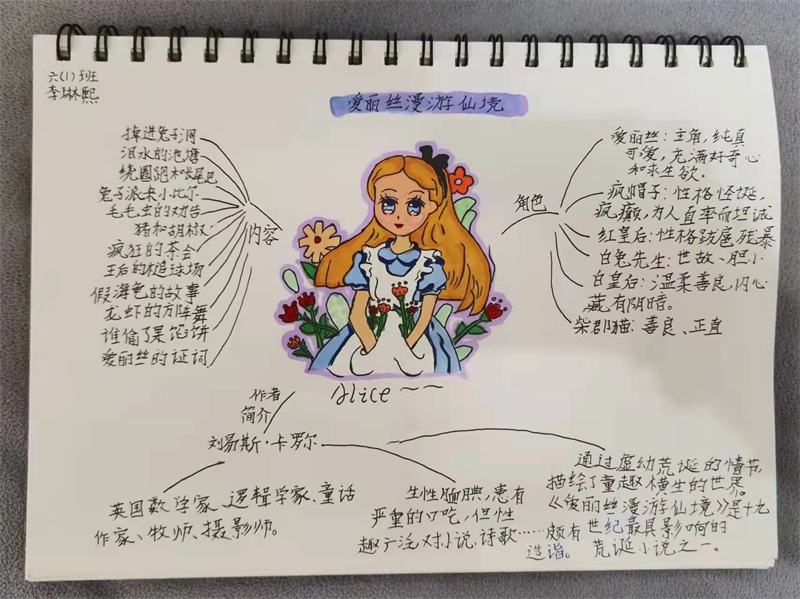 六(1)班
李琳熙
爱丽丝漫游仙境
掉进兔子洞
泪水的池塘
绕圈跑和长尾巴
兔子派来小比尔
毛毛虫的劝告
猪和胡椒
疯狂的茶会
王后的槌球场
假海龟的故事
龙虾的方阵舞
谁偷了果馅饼
爱丽丝的证词
内容
角色
爱丽丝:主角,纯真
可爱,充满好奇心
和求生欲。
疯帽子:性格怪诞,
疯癫,为人直率而坦诚
红皇后:性格跋扈残暴
白兔先生:世故、胆小
白皇后:温柔善良,内心
藏有阴暗。
柴郡猫:善良、正直
Alice~~
作者
简介
刘易斯·卡罗尔
英国数学家、逻辑学家、童话
作家、牧师、摄影师。
生性腼腆,患有
严重的口吃,但性
趣广泛对小说、诗歌……颇有
造诣。
通过虚幻荒诞的情节
描绘了童趣横生的世界。
《爱丽丝漫游仙境》是十九
世纪最具影响的
荒诞小说之一。